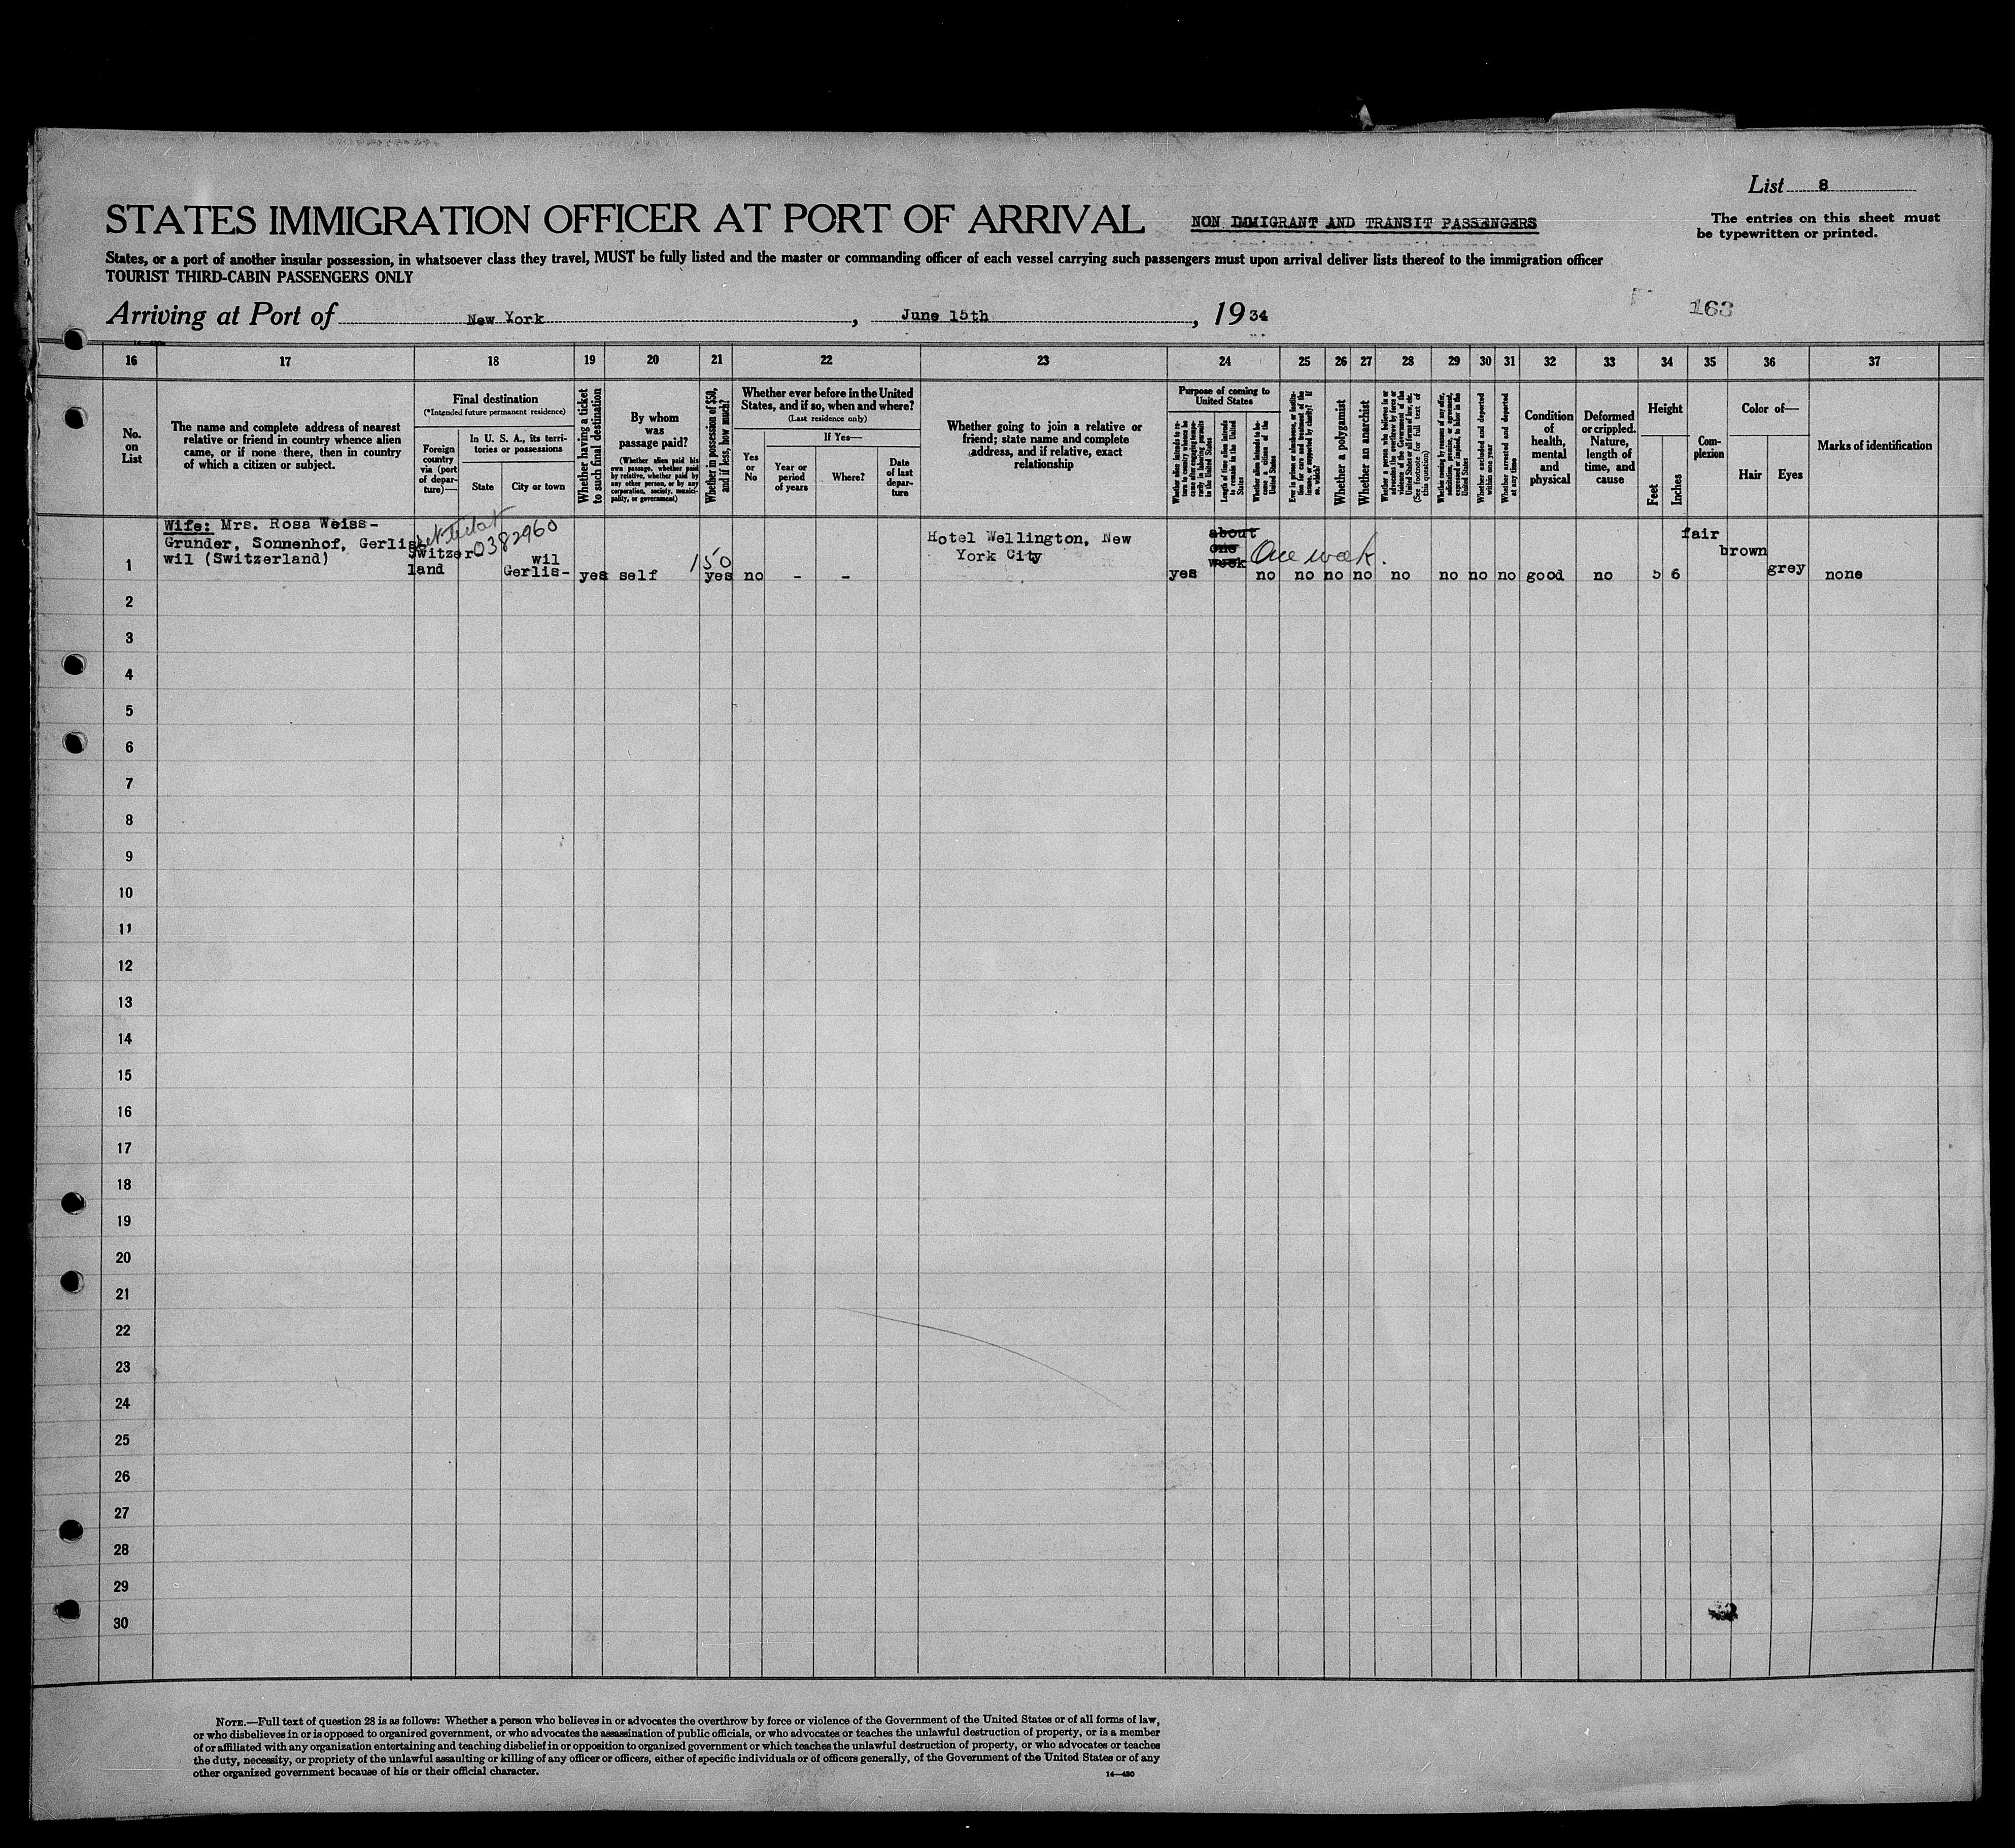 List 8
STATES IMMIGRATION OFFICER AT PORT OF ARRIVAL
NON IMMIGRANT AND TRANSIT PASSENGERS
The entries on this sheet must
be typewritten or printed.
States, or a port of another insular possession, in whatsoever class they travel, MUST be fully listed and the master or commanding officer of each vessel carrying such passengers must upon arrival deliver lists thereof to the immigration officer
TOURIST THIRD-CABIN PASSENGERS ONLY
Arriving at Port of New York, June 15th, 1934
163
16 17 18 19 20 21 22 23 24 25 26 27 28 29 30 31 32 33 34 35 36 37
No.
on
List
The name and complete address of nearest
relative or friend in country whence alien
came, or if none there, then in country
of which a citizen or subject.
Final destination
(*Intended future permanent residence)
Foreign
country
via (port
of depar-
ture)—
In U. S. A., its terri-
tories or possessions
State
City or town
Whether having a ticket
to such final destination
By whom
was
passage paid?
(Whether alien paid his
own passage, whether paid
by relative, whether paid by
any other person, or by any
corporation, society, munici-
pality, or government)
Whether in possession of $50,
and if less, how much?
Whether ever before in the United
States, and if so, when and where?
(Last residence only)
Yes
or
No
If Yes—
Year or
period
of years
Where?
Date
of last
depar-
ture
Whether going to join a relative or
friend; state name and complete
address, and if relative, exact
relationship
Purpose of coming to
United States
Whether alien intends to re-
turn to country whence he
came after engaging tempo-
rarily in laboring pursuits
in the United States
Length of time alien intends
to remain in the United
States
Whether alien intends to be-
come a citizen of the
United States
Ever in prison or almshouse, or institu-
tion for care and treatment of the
insane, or supported by charity? If
so, which?
Whether a polygamist
Whether an anarchist
Whether a person who believes in or
advocates the overthrow by force or
violence of the Government of the
United States or all forms of law, etc.
(See footnote for full text of
this question)
Whether coming by reason of any offer,
solicitation, promise, or agreement,
expressed or implied, to labor in the
United States
Whether excluded and deported
within one year
Whether arrested and deported
at any time
Condition
of
health,
mental
and
physical
Deformed
or crippled.
Nature,
length of
time, and
cause
Height
Feet
Inches
Com-
plexion
Color of—
Hair
Eyes
Marks of identification
Wife: Mrs. Rosa Weiss-
Grunder, Sonnenhof, Gerlis-
wil (Switzerland)
0382960
Switzer
land
wil
Gerlis-
yes self
150
yes no - -
Hotel Wellington, New
York City
about
one
week
One week.
yes no no no no no no no no good no 5 6
fair
brown
grey
none
1
2
3
4
5
6
7
8
9
10
11
12
13
14
15
16
17
18
19
20
21
22
23
24
25
26
27
28
29
30
NOTE.—Full text of question 28 is as follows: Whether a person who believes in or advocates the overthrow by force or violence of the Government of the United States or of all forms of law,
or who disbelieves in or is opposed to organized government, or who advocates the assassination of public officials, or who advocates or teaches the unlawful destruction of property, or is a member
of or affiliated with any organization entertaining and teaching disbelief in or opposition to organized government or which teaches the unlawful destruction of property, or who advocates or teaches
the duty, necessity, or propriety of the unlawful assaulting or killing of any officer or officers, either of specific individuals or of officers generally, of the Government of the United States or of any
other organized government because of his or their official character.
14—430